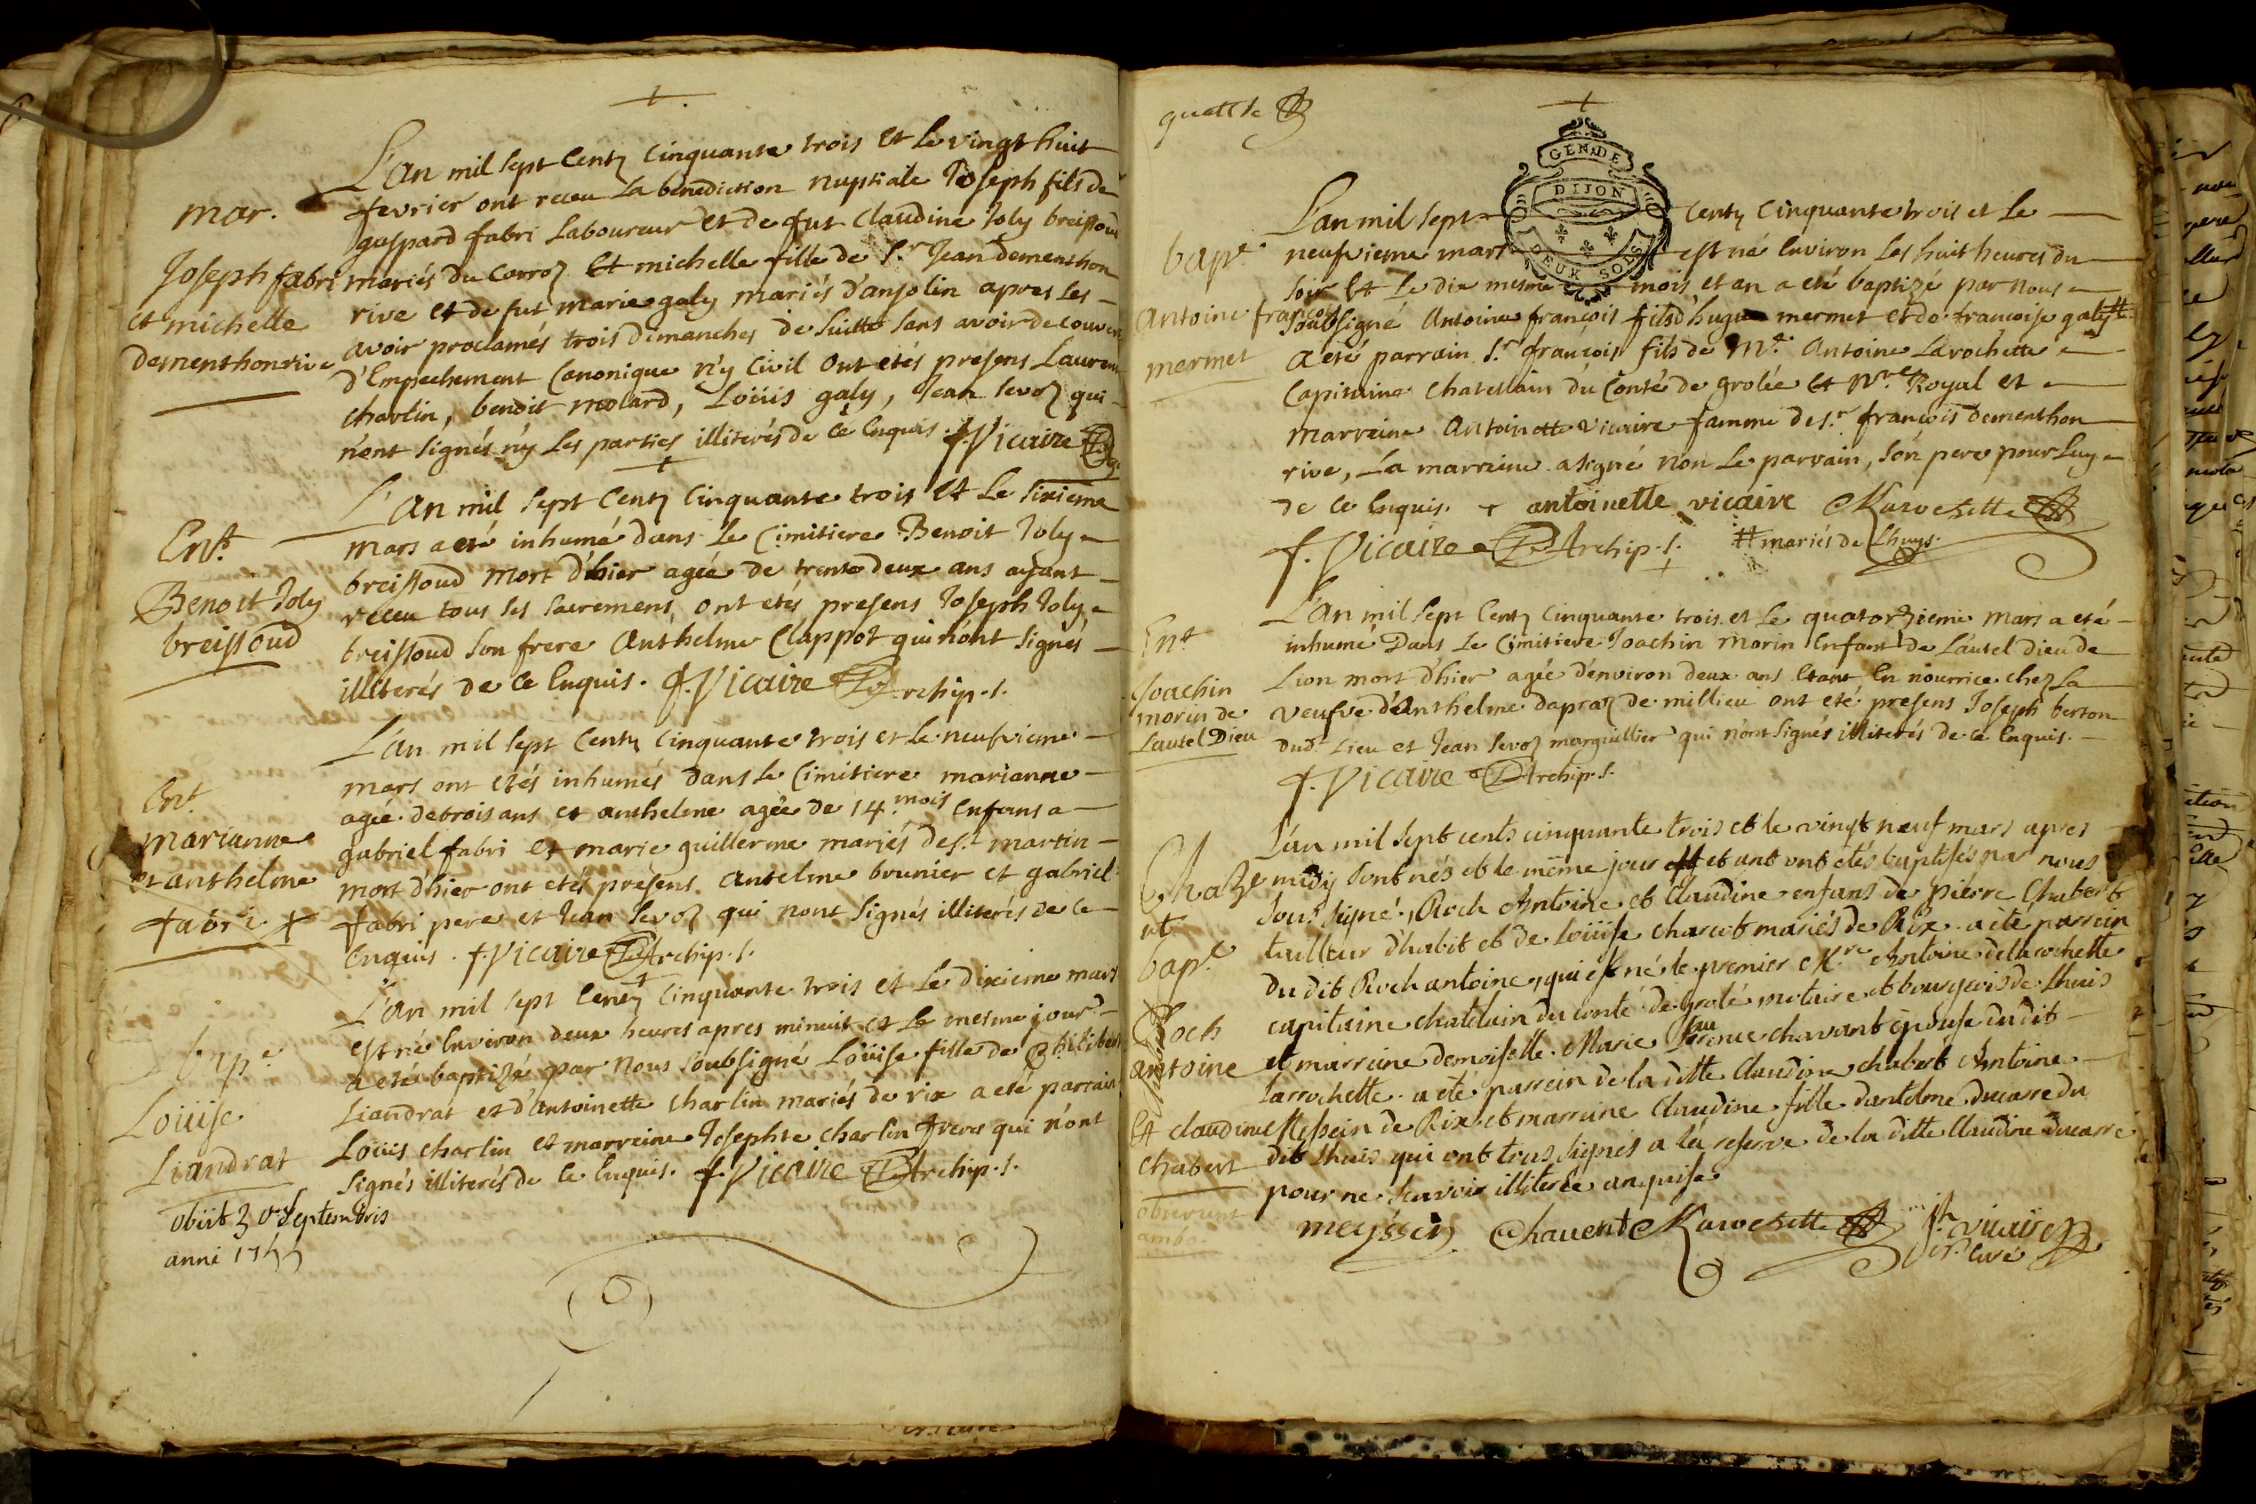 mar.
Joseph fabri
et michelle
dementhonrive
L'an mil sept Centz Cinquante trois et le vingt huit
fevrier ont receu La benediction nuptiale Joseph fils de
gaspard fabri Laboureur et de fut Claudine Joly breissoud
mariés du Corroz et michelle fille de Sr Jean dementhon
rive et de fut marie galy mariés d'ansolin apres les
avoir proclamés trois dimanches de suitte sans avoir decouvert
d'Empechement Canonique n'y Civil ont etés presens Laurent
charlin, benoit molard, Loüis galy, Jean sevoz qui
n'ent signés n'y les parties illiterés de ce Enquis. f. Vicaire
Ent.
Benoit Joly
breissoud
L'an mil sept Centz Cinquante trois et le sixieme
mars a eté inhumé dans le Cimitiere Benoit Joly
breissoud mort d'hier agée de trente deux ans ayant
receu tous ses sacremens, ont etés presens Joseph Joly
breissoud son frere Anthelme Clappot qui n'ont signés
illiterés de ce Enquis. f. Vicaire Archip. s.
Ent.
marianne
et anthelme
fabri
L'an mil sept Centz Cinquante trois et le neufvieme
mars ont etés inhumés dans le Cimitiere marianne
agée de trois ans et anthelme agée de 14. mois Enfans a
gabriel fabri et marie guillerme mariés de st martin
mort d'hier ont etés présens antelme brunier et gabriel
fabri pere et Jean sevoz qui nont signés illiterés de ce
Enquis. f. Vicaire Archip. s.
bape
Loüise
Liandrat
obiit 3 7septembris
anni 1755
L'an mil sept Centz Cinquante trois et le dixieme mars
est né Environ deux heures apres minuit et le mesme jour
a eté baptizé par nous soubsigné Loüise fille de philibert
Liandrat et d'Antoinette charlin mariés de rix a eté parrain
Loüis charlin et marreine Josephte charlin freres qui n'ont
signés illiterés de ce Enquis. f. Vicaire Archip. s.
GEN. DE
DIJON
DEUX SOLS
bape
Antoine françois
mermet
L'an mil sept Centz Cinquante trois et le
neufvieme mars est né Environ les huit heures du
soir et le dix mesme mois et an a eté baptizé par nous
soubsigné Antoine françois fils d'hugue mermet et de françoise galy #
a eté parrain Sr françois fils de Me Antoine Larochette
Capitaine chatellain du Conté de grolée et Nre Royal et
marreine Antoinette vicaire famme de sr françois dementhon
rive, La marreine a signé non le parrain, son pere pour luy
de ce Enquis. antoinette vicaire Larochette
f. Vicaire Archip. s. # mariés de Lhuys.
Ent
Joachin
morin de
Lautel Dieu
L'an mil sept Centz Cinquante trois et le quatorzieme mars a eté
inhumé Dans le Cimitiere Joachin Morin Enfant de Lautel dieu de
Lion mort d'hier agée d'environ deux ans Etant En nourrice chez la
veufve d'Anthelme dapraz de millieu ont eté presens Joseph berton
dudt Lieu et Jean sevoz marguillier qui n'ont signés illiterés de ce Enquis.
f. Vicaire Archip. s.
bape
Roch
antoine
Et claudine
chabert
obierunt
ambo
L'an mil sept cents cinquante trois et le vingt neuf mars apres
midy sont nés et le même jour et ant ont etés baptisés par nous
sous signé, Roch Antoine et Claudine enfans de pierre Chabert
tailleur d'habit et de loüise charcot mariés de Rix. a ete parrein
du dit Roch antoine, qui est né le premier Mre Antoine de larochette
capitaine chatelain du conté de grolé notaire et bourgeois de Lhuis
et marreine demoiselle Marie Laurence chavant épouse du dit
larrochette. a eté parrein de la ditte Claudine chabert Antoine
Messein de Rix et marraine Claudine fille dantelme ducarre du
dit Lhuis qui ont tous signés a la reserve de la ditte Claudine ducarre
pour ne scavoir illiterée enquise
meyssein Chavent Larochette jh vicaire
curé